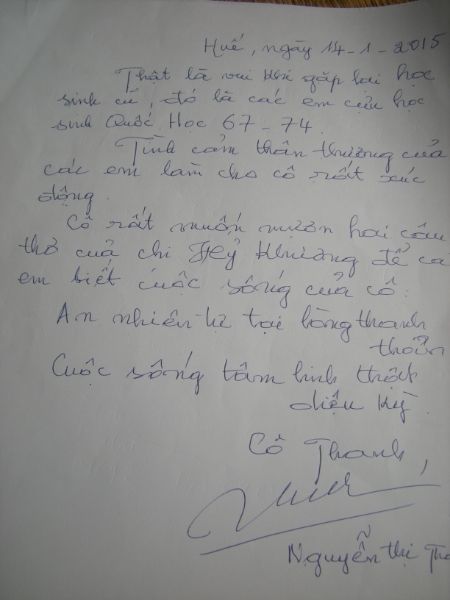 Huế, ngày 14-1-2015
Thật là vui khi gặp lại học
sinh cũ, đó là các em cựu học
sinh Quốc Học 67-74.
Tình cảm thân thương của
các em làm cho cô rất xúc
động.
Cô rất muốn mượn hai câu
thơ của chị Hỷ Khương để cá
em biết cuộc sống của cô:
An nhiên tự tại lòng thanh
thản
Cuộc sống tâm linh thật
diệu kỳ.
Cô Thanh,
Nguyễn thị Tha